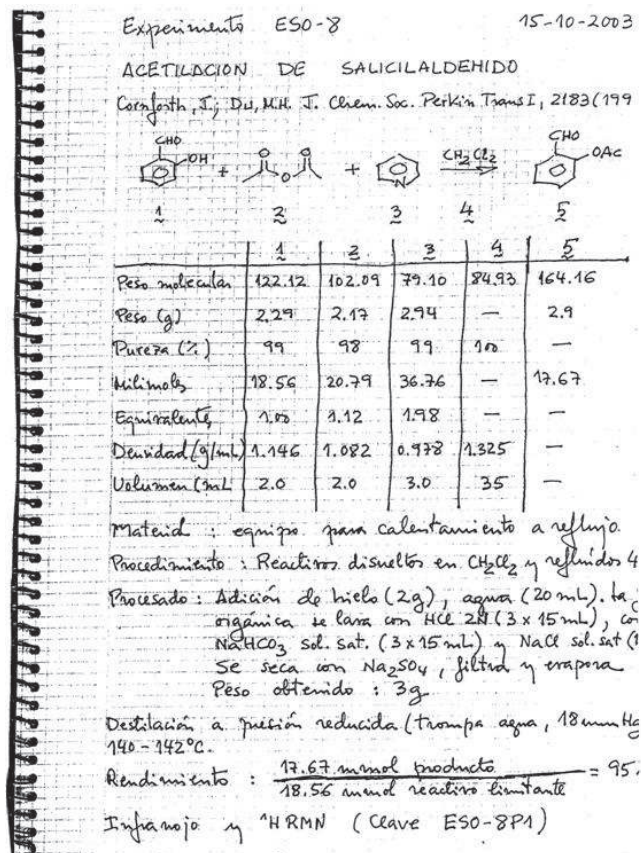 Experimento ESO-8 15-10-2003
ACETILACION DE SALICILALDEHIDO
Cornforth, J.; Du, M.H. J. Chem. Soc. Perkin Trans I, 2183 (199
CHO OH + O O O + N CH2Cl2 CHO OAc
1 2 3 4 5
1 2 3 4 5
Peso molecular 122.12 102.09 79.10 84.93 164.16
Peso (g) 2.29 2.17 2.94 — 2.9
Pureza (%) 99 98 99 100 —
Milimoles 18.56 20.79 36.76 — 17.67
Equivalentes 1.00 1.12 1.98 — —
Densidad (g/mL) 1.146 1.082 0.978 1.325 —
Volumen (mL 2.0 2.0 3.0 35 —
Material : equipo para calentamiento a reflujo.
Procedimiento : Reactivos disueltos en CH2Cl2 y refluidos 4
Procesado : Adición de hielo (2g), agua (20 mL). la
orgánica se lava con HCl 2N (3 x 15 mL), co
NaHCO3 sol. sat. (3 x 15 mL) y NaCl sol. sat (1
Se seca con Na2SO4, filtra y evapora
Peso obtenido : 3g
Destilación a presión reducida (trompa agua, 18 mm Hg
140-142°C.
Rendimiento : 17.67 mmol producto / 18.56 mmol reactivo limitante = 95.
Infrarrojo y 1H RMN (Clave ESO-8P1)